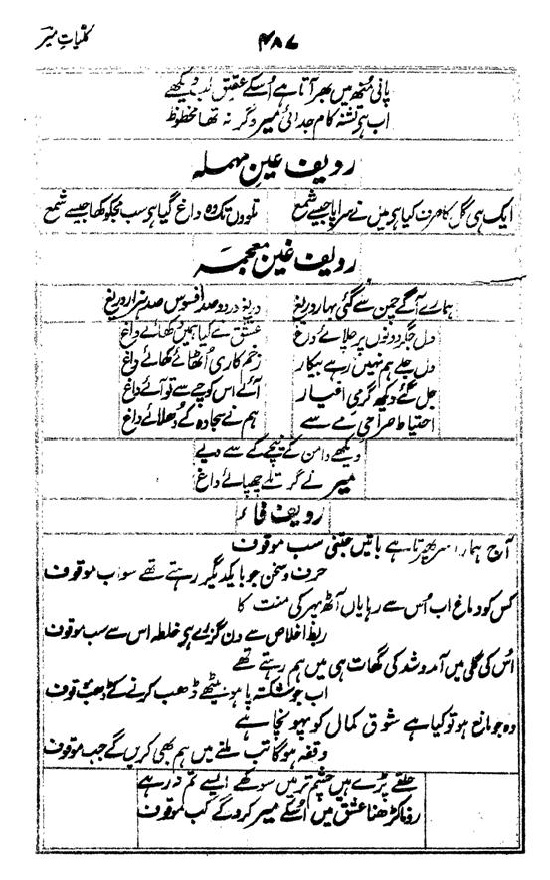 کلیات میر
۴۸۷
پانی منھ میں بھر آتا ہے اُسکے عقیق لب دیکھے
اب ہی تشنہ کام جدائی میر وگرنہ تھا محظوظ
ردیف عین مہملہ
ایک ہی گل کا صرف کیا ہی میں نے سراپا جیسے شمع
تلووں تک وہ داغ گیا ہی سب مجکو کھا جیسے شمع
ردیف غین معجمہ
ہمارے آگے چمن سے گئی بہار دریغ
دریغ درد و صد افسوس صد ہزار دریغ
دل جگر دونوں پر جلائے داغ
عشق نے کیا ہمیں دکھائے داغ
دل جلے ہم نہیں رہے بیکار
زخم کاری اُٹھائے کھائے داغ
جل گئے دیکھ گرمی اغیار
آئے اس کوچے سے تو آئے داغ
احتیاط صراحی مے سے
ہم نے سجادہ کے دُھلائے داغ
دیکھے دامن کے نیچے کے سے دیے
میر نے گر تلے چھپائے داغ
ردیف فاء
آج ہمارا سر پھرتا ہے باتیں جتنی سب موقوف
حرف و سخن جو بایکدیگر رہتے تھے سو اب موقوف
کس کو دماغ اب اُس سے رہا یاں آٹھ پہر کی منت کا
ربط اخلاص سے دن گزرے ہی خلطہ اس سے سب موقوف
اُس کی گلی میں آمد و شد کی گھات ہی میں ہم رہتے تھے
اب جو شکستہ پا ہو بیٹھے ڈھب کرنے کے ڈھب موقوف
وہ جو مانع ہو تو کیا ہے شوق کمال کو پہونچا ہے
وقفہ ہو گا تب ملنے میں ہم بھی کریں گے جب موقوف
حلقے پڑے ہیں چشم تر میں سوکھے ایسے تم نہ رہے
رونا کڑھنا عشق میں اُسکے میر کروگے کب موقوف